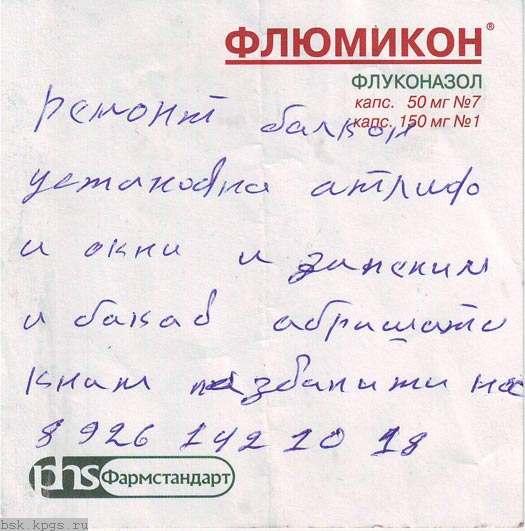 ФЛЮМИКОН®
ФЛУКОНАЗОЛ
капс. 50 мг №7
капс. 150 мг №1
ремонт балкон
установка атлифо
и окни и занским
и бакав абришати
кним пазванити на
8 926 142 10 18
phs Фармстандарт
bsk.kpgs.ru